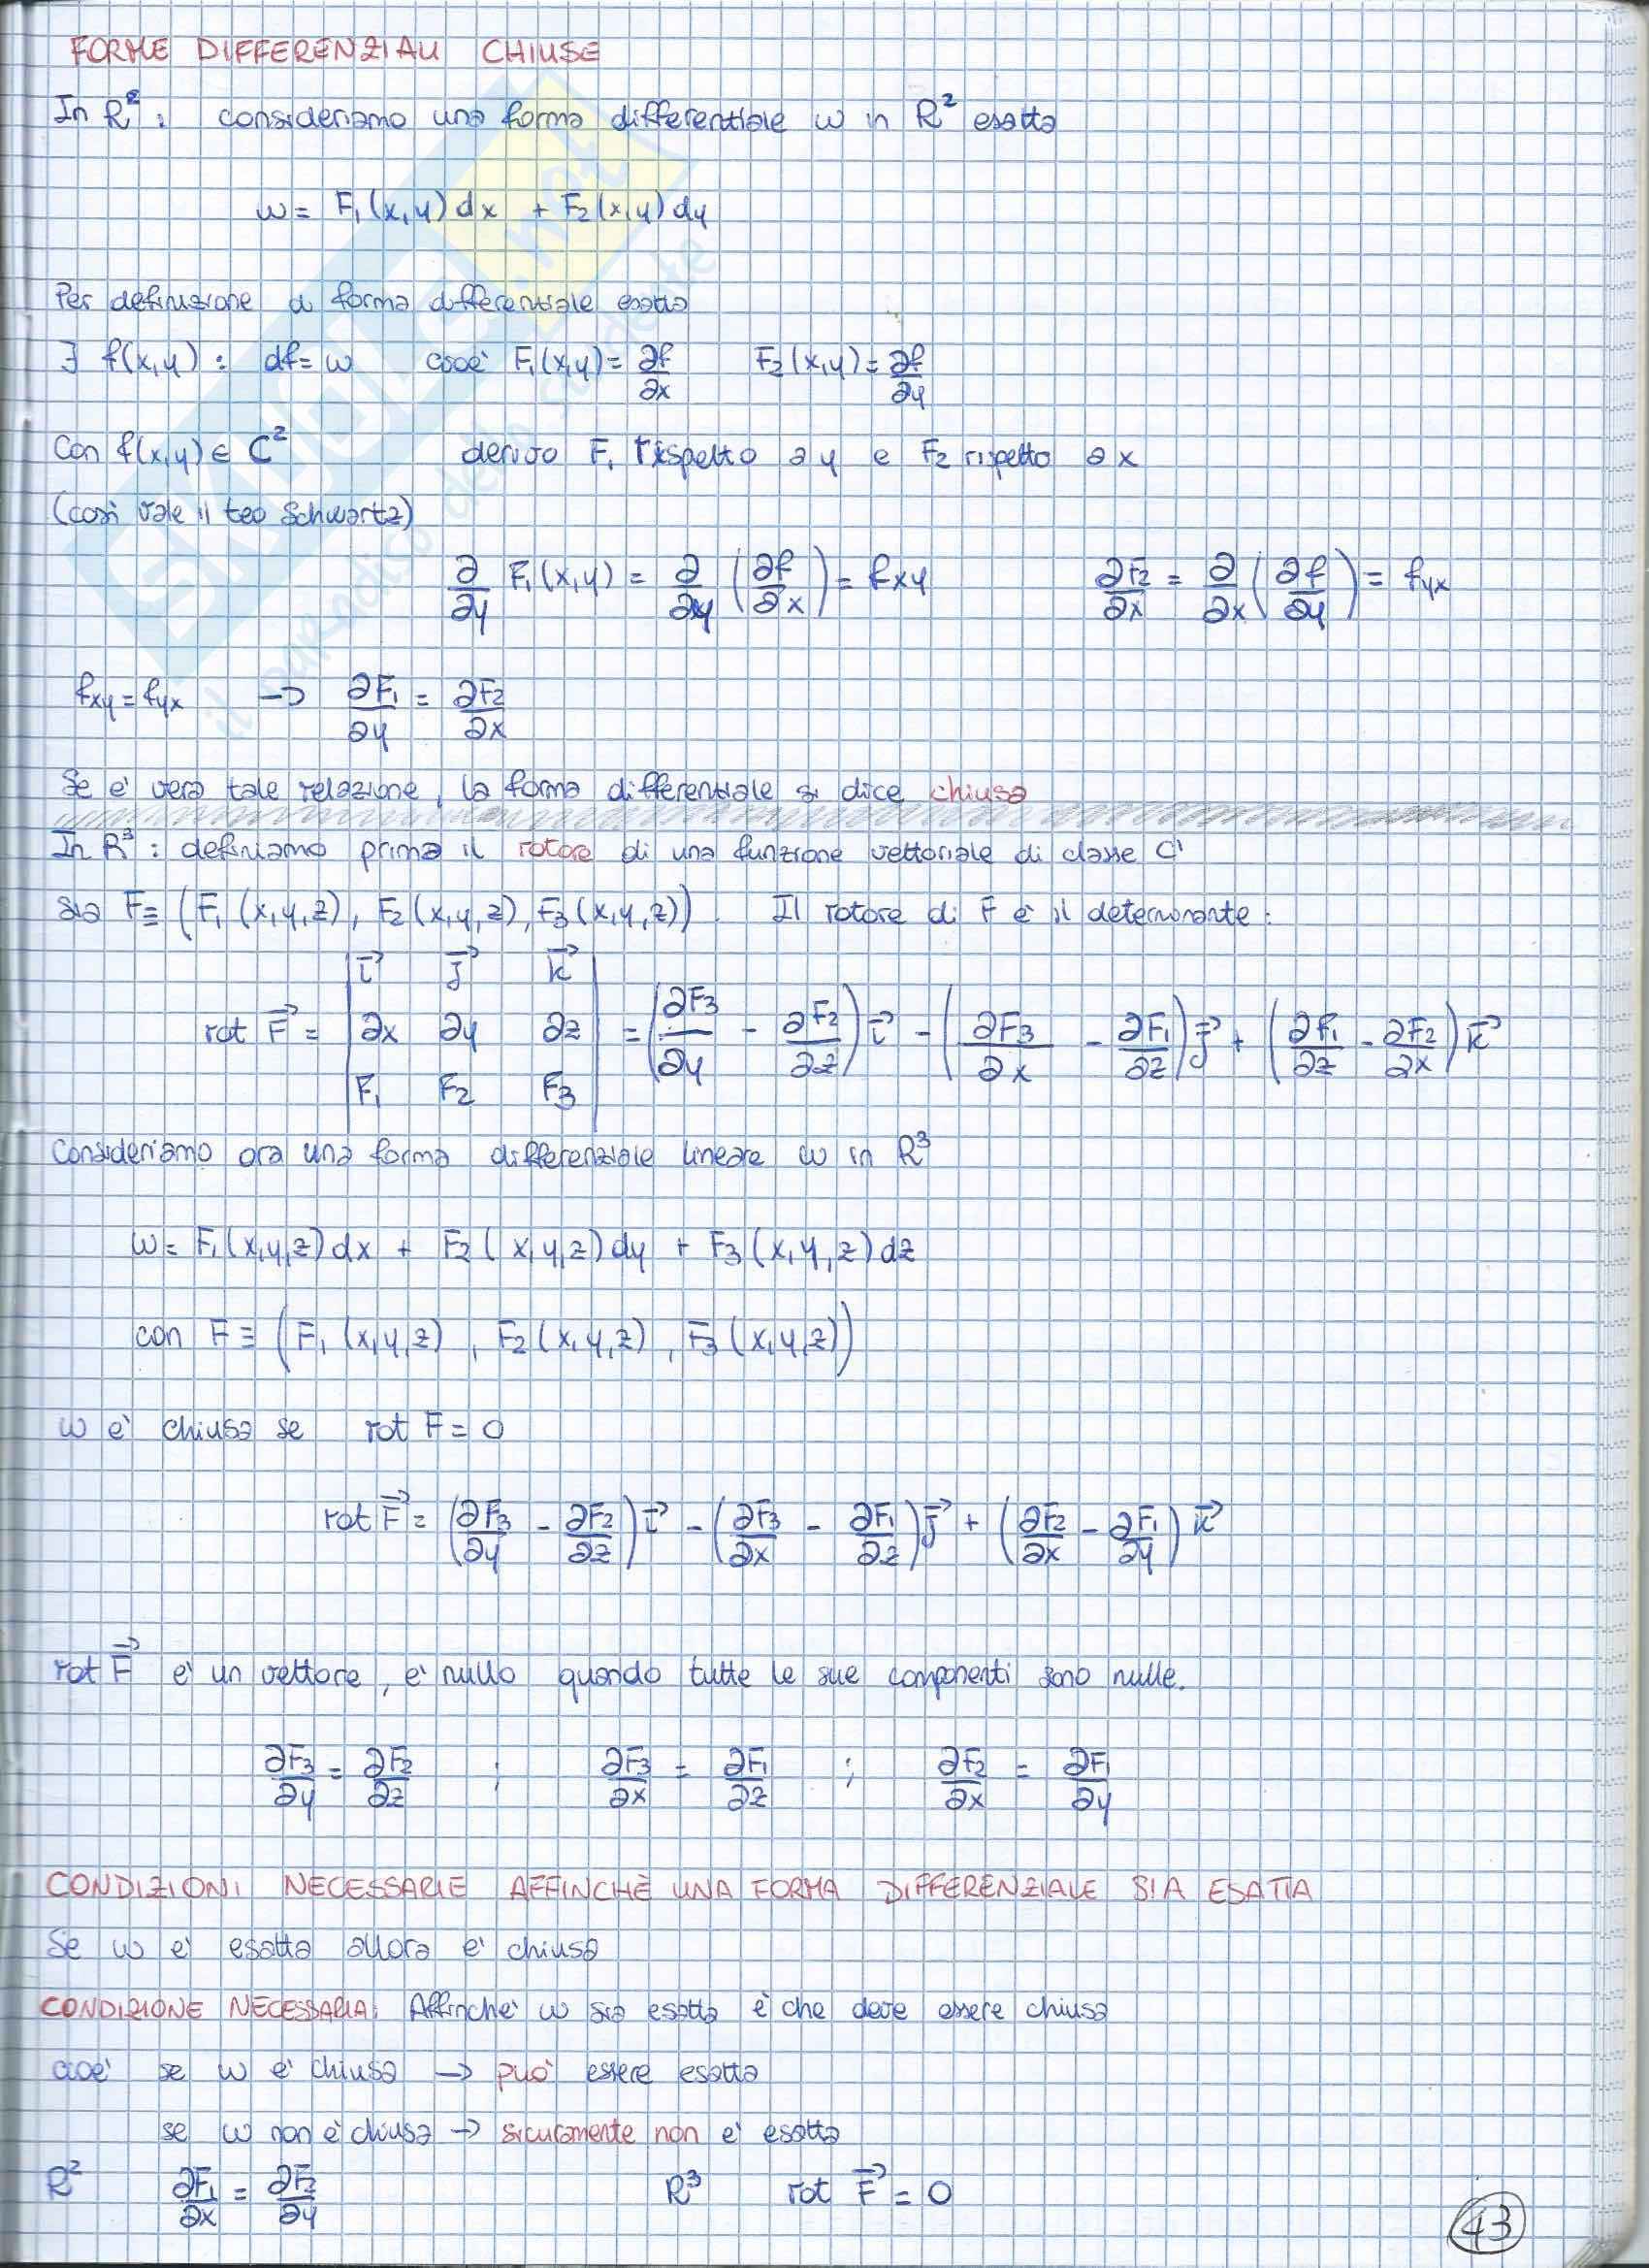 FORME DIFFERENZIALI CHIUSE
In R²: consideriamo una forma differenziale ω in R² esatta
ω = F₁(x,y)dx + F₂(x,y)dy
Per definizione di forma differenziale esatta
∃ f(x,y) : df = ω cioè F₁(x,y) = ∂f/∂x F₂(x,y) = ∂f/∂y
Con f(x,y) ∈ C² derivo F₁ rispetto a y e F₂ rispetto a x
(così vale il teo Schwartz)
∂/∂y F₁(x,y) = ∂/∂y (∂f/∂x) = fxy ∂F₂/∂x = ∂/∂x (∂f/∂y) = fyx
fxy = fyx → ∂F₁/∂y = ∂F₂/∂x
Se è vera tale relazione, la forma differenziale si dice chiusa
In R³: definiamo prima il rotore di una funzione vettoriale di classe C¹
sia F ≡ (F₁(x,y,z), F₂(x,y,z), F₃(x,y,z)). Il rotore di F è il determinante:
rot F⃗ = | i⃗ j⃗ k⃗ | ∂x ∂y ∂z | F₁ F₂ F₃ | = (∂F₃/∂y - ∂F₂/∂z) i⃗ - (∂F₃/∂x - ∂F₁/∂z) j⃗ + (∂F₁/∂z - ∂F₂/∂x) k⃗
Consideriamo ora una forma differenziale lineare ω in R³
ω = F₁(x,y,z)dx + F₂(x,y,z)dy + F₃(x,y,z)dz
con F ≡ (F₁(x,y,z), F₂(x,y,z), F₃(x,y,z))
ω è chiusa se rot F = 0
rot F⃗ = (∂F₃/∂y - ∂F₂/∂z) i⃗ - (∂F₃/∂x - ∂F₁/∂z) j⃗ + (∂F₂/∂x - ∂F₁/∂y) k⃗
rot F⃗ è un vettore, è nullo quando tutte le sue componenti sono nulle.
∂F₃/∂y = ∂F₂/∂z ; ∂F₃/∂x = ∂F₁/∂z ; ∂F₂/∂x = ∂F₁/∂y
CONDIZIONI NECESSARIE AFFINCHÈ UNA FORMA DIFFERENZIALE SIA ESATTA
Se ω è esatta allora è chiusa
CONDIZIONE NECESSARIA: Affinché ω sia esatta è che deve essere chiusa
cioè se ω è chiusa → può essere esatta
se ω non è chiusa → sicuramente non è esatta
R² ∂F₁/∂x = ∂F₂/∂y R³ rot F⃗ = 0
43